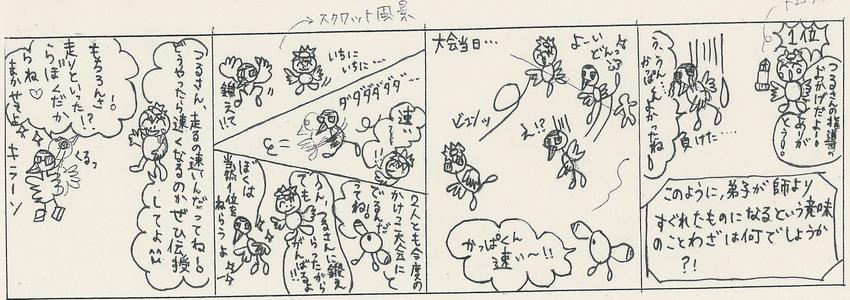 つるさん、走るの速いんだってね!。
どうやったら速くなるのかぜひ伝授
してよ
もちろんさー!。
走りといったら!?
らぼくだか
らね♡
まかせてよ
くるっ
キラーン
スクワット風景
いちに
いちに…
鍛えて!!
ダダダダダ…
速い
…!!
2人とも今度の
かけっこ大会に
でるんだ
ってね。
うん、つるさんに鍛え
てもらったから
がんばるよ!!
ぼくは
当然1位を
ねらうよ
大会当日…
よーい
どんっ
ビュンッ
え!?
かっぱくん
速い〜!!
1位
つるさんの指導の
おかげだよー!
ありが
とうー!。
う、うん、
かっぱくんよかったね…
負けた…
このように、弟子が師より
すぐれたものになるという意味
のことわざは何でしょうか
?!